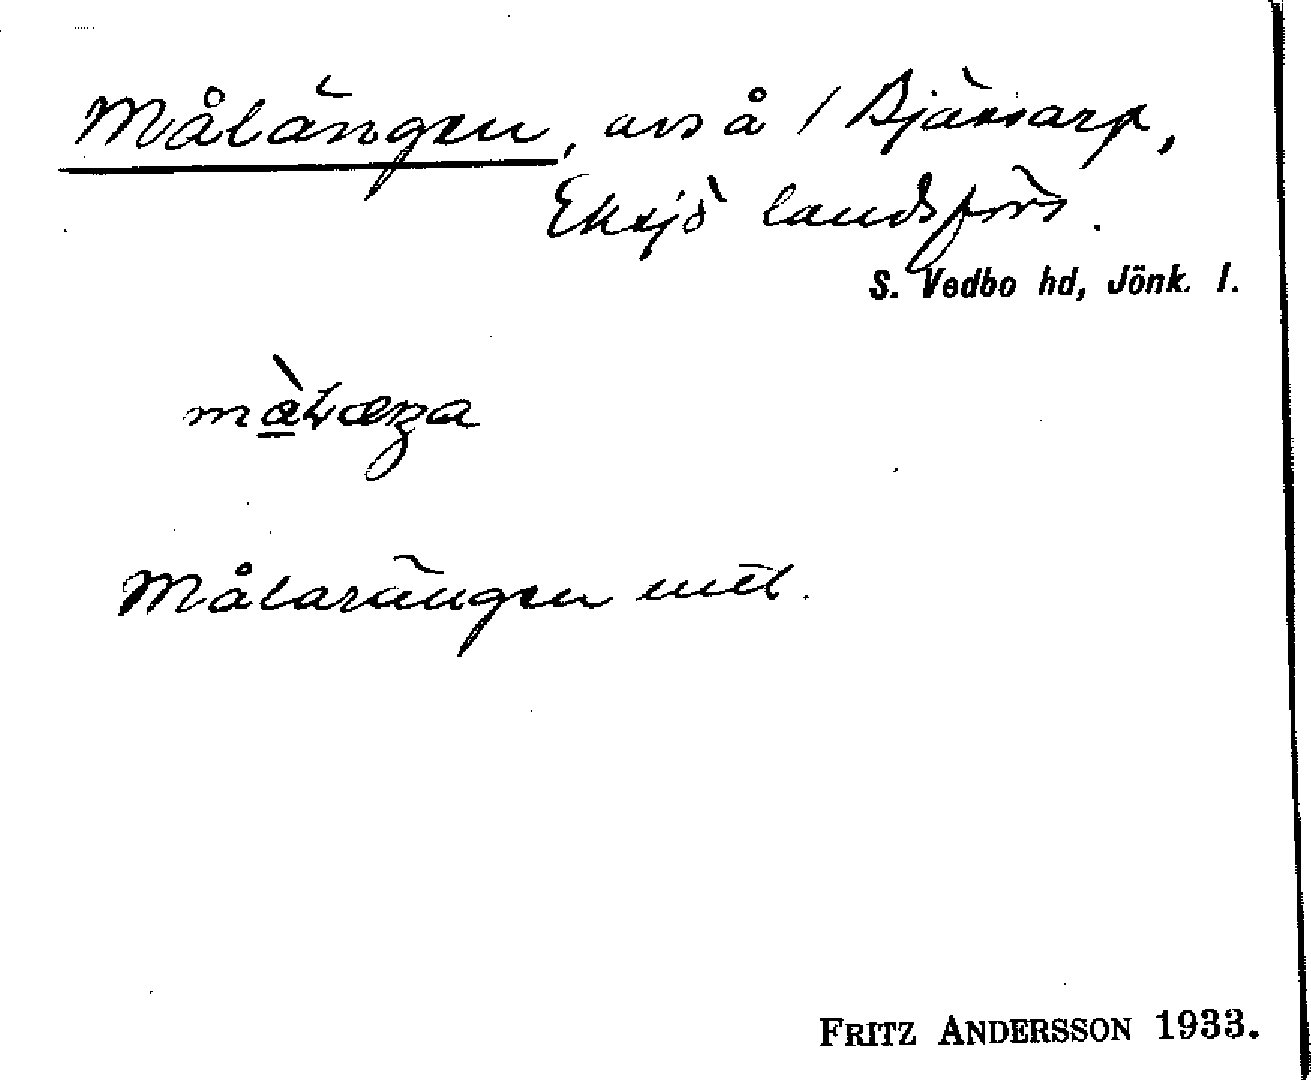 Målängen, avs å 1 Bjässarp,
Eksjö landsförs.
S. Vedbo hd, Jönk. l.
Målarängen uttl.
FRITZ ANDERSSON 1933.